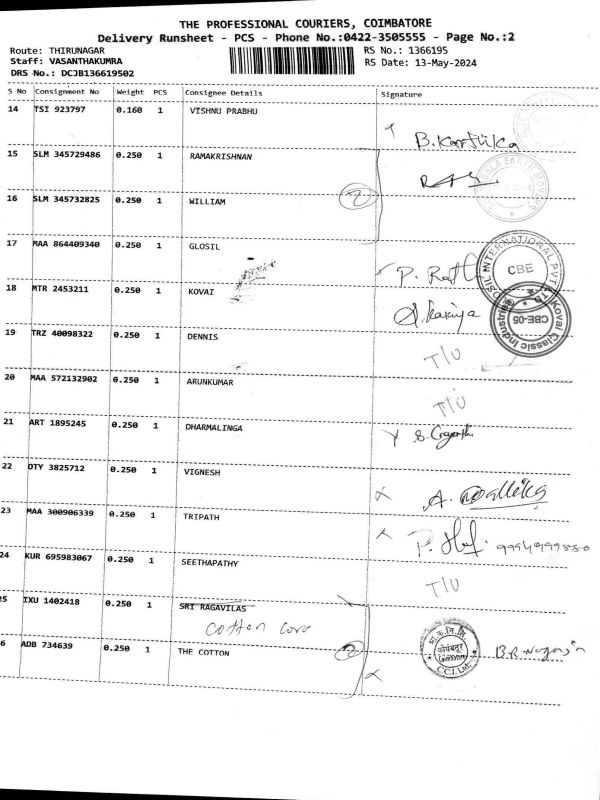 THE PROFESSIONAL COURIERS, COIMBATORE
Delivery Runsheet - PCS - Phone No.:0422-3505555 - Page No.:2
Route: THIRUNAGAR
Staff: VASANTHAKUMRA
DRS No.: DCJB136619502
RS No.: 1366195
RS Date: 13-May-2024
S No Consignment No Weight PCS Consignee Details Signature
14 TSI 923797 0.160 1 VISHNU PRABHU
B. Karthika
15 SLM 345729486 0.250 1 RAMAKRISHNAN
16 SLM 345732825 0.250 1 WILLIAM
2
17 MAA 864409340 0.250 1 GLOSIL
CBE
18 MTR 2453211 0.250 1 KOVAI
Kovai Classic Industries
CBE-05
19 TRZ 40098322 0.250 1 DENNIS
T/U
20 MAA 572132902 0.250 1 ARUNKUMAR
T/U
21 ART 1895245 0.250 1 DHARMALINGA
22 OTY 3825712 0.250 1 VIGNESH
A. Mallika
23 MAA 300906339 0.250 1 TRIPATH
24 KUR 695983067 0.250 1 SEETHAPATHY
T/U
25 IXU 1402418 0.250 1 SRI RAGAVILAS
Cotton Corp
6 ADB 734639 0.250 1 THE COTTON
2
कोयंबतूर